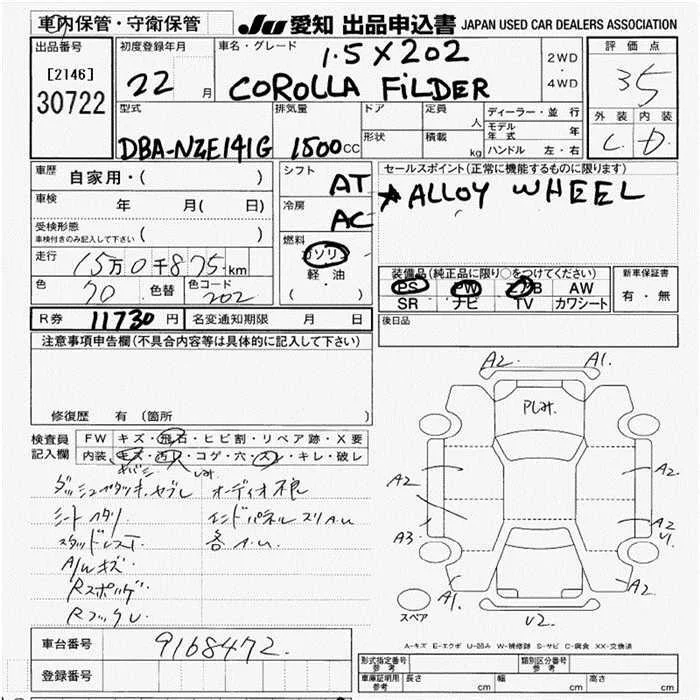 車内保管・守衛保管 JU 愛知 出品申込書 JAPAN USED CAR DEALERS ASSOCIATION
出品番号 初度登録年月 車名・グレード 1.5X202 2WD ・ 4WD 評価点
[2146] 22 月 COROLLA FiLDER 35
30722 型式 排気量 ドア 定員 人 ディーラー・並行 外装 内装
モデル年式 年 C D
DBA-NZE141G 1500 CC 形状 積載 kg ハンドル 左・右
車歴 自家用・( ) シフト AT セールスポイント(正常に機能するものに限ります)
車検 年 月( 日) 冷房 AC ☆ALLOY WHEEL
受検形態 ( )
車検付きのみ記入して下さい
燃料 ガソリン
走行 15万0千875km 軽・油 装備品(純正品に限り○をつけてください) 新車保証書
色 70 色替 色コード 202 (・) PS PW エアB AW 有・無
SR ナビ TV カワシート
R券 11730円 名変通知期限 月 日 後日品
注意事項申告欄(不具合内容等は具体的に記入して下さい)
A2. A1.
Pレキ.
修復歴 有(箇所
検査員 FW キズ・飛石・ヒビ割・リペア跡・X要
記入欄 内装 キズ・汚レ・コゲ・穴・スレ・キレ・破レ
ダッシュ ヤブレ オーディオ
A2 A2
シートヘタリ エンドパネル スリA.u
スタッドレスT. 各A.u.
A3. A2 U1.
A/Wキズ
Rスポ
A1. A2.
RフックU
スペア U2.
車台番号 9168472.
A-キズ E-エクボ U-凹み W-補修跡 S-サビ C-腐食 XX-交換済
登録番号 型式指定番号 参考 類別区分番号 参考
車庫証明用 参考 長さ cm 幅 cm 高さ cm